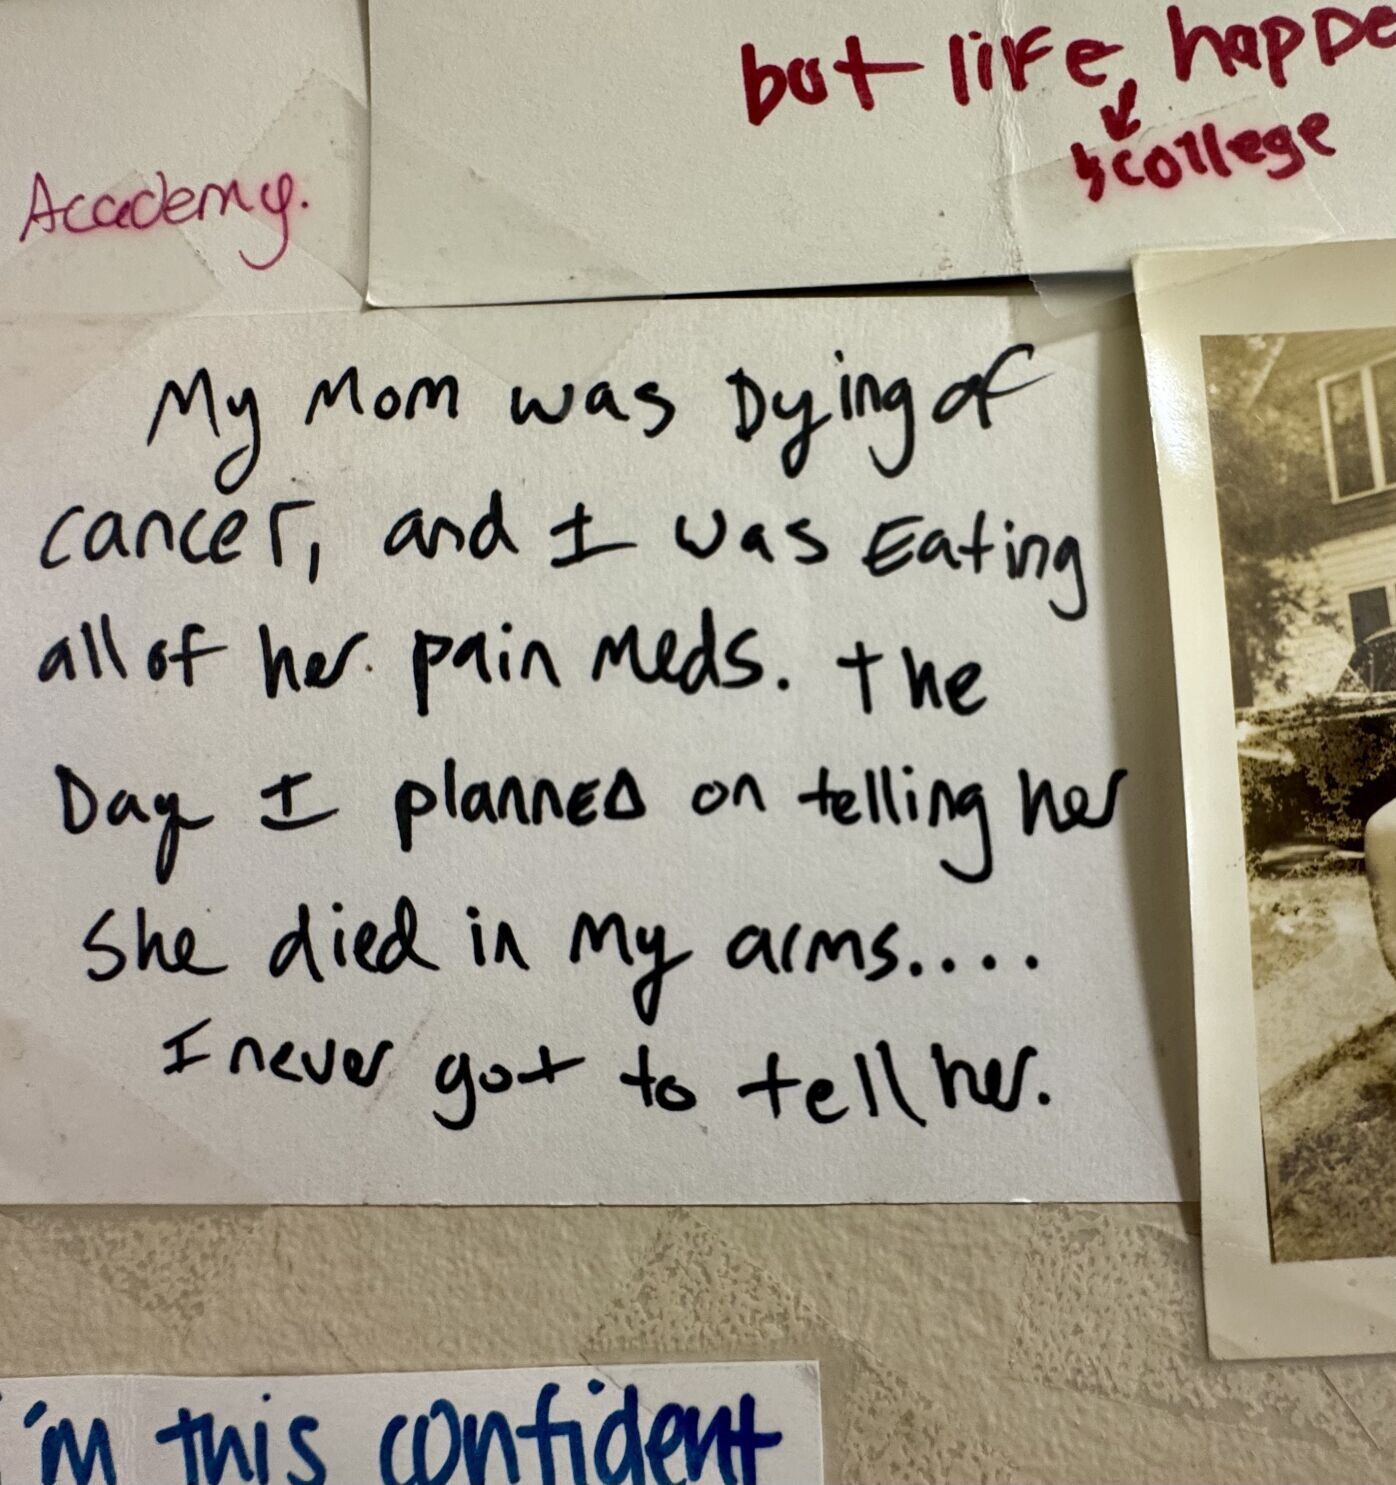 but life happe
& college
Academy.
My Mom was Dying of
cancer, and I was Eating
all of her pain meds. the
Day I plannED on telling her
She died in my arms....
I never got to tell her.
i'm this confident